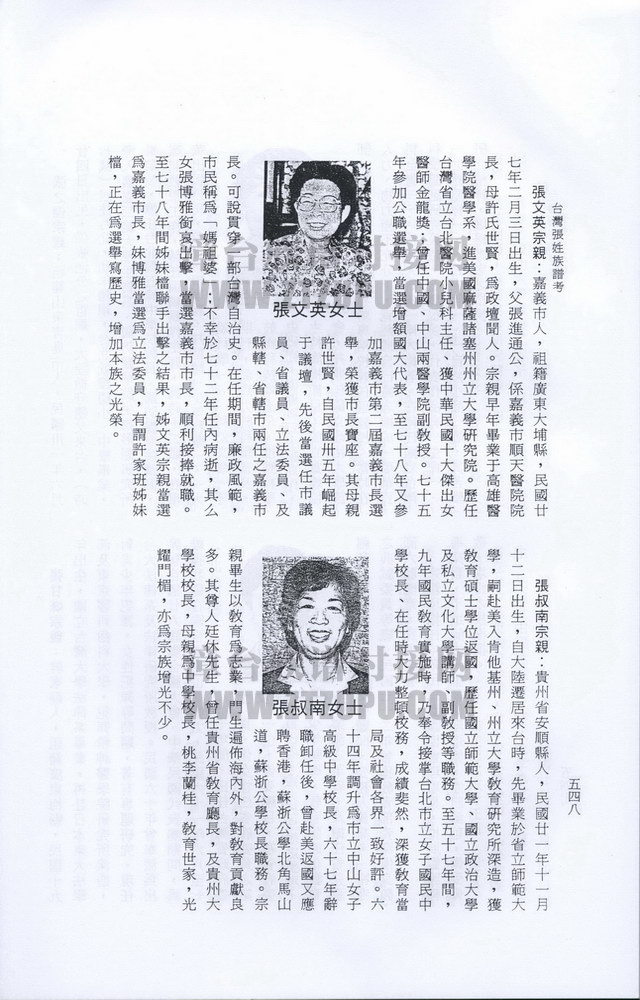 台灣張姓族譜考
張文英宗親：嘉義市人，祖籍廣東大埔縣，民國廿
七年二月三日出生，父張進通公，係嘉義市順天醫院院
長，母許氏世賢，爲政壇聞人。宗親早年畢業于高雄醫
學院醫學系，進美國麻薩諸塞州州立大學研究院。歷任
台灣省立台北醫院小兒科主任、獲中華民國十大傑出女
醫師金龍獎；曾任中國、中山兩醫學院副教授。七十五
年參加公職選舉，當選增額國大代表，至七十八年又參
加嘉義市第二屆嘉義市長選
舉，榮獲市長寶座。其母親
許世賢，自民國卅五年崛起
于議壇，先後當選任市議
員、省議員、立法委員、及
縣轄、省轄市兩任之嘉義市
張文英女士
長。可說貫穿一部台灣自治史。在任期間，廉政風範，
市民稱爲「媽祖婆」，不幸於七十二年任內病逝，其么
女張博雅銜哀出擊，當選嘉義市市長，順利接捧就職。
至七十八年間姊妹檔聯手出擊之結果，姊文英宗親當選
爲嘉義市長，妹博雅當選爲立法委員，有謂許家班姊妹
檔，正在爲選舉寫歷史，增加本族之光榮。
張叔南宗親：貴州省安順縣人，民國廿一年十一月
十二日出生，自大陸遷居來台時，先畢業於省立師範大
學，嗣赴美入肯他基州、州立大學教育研究所深造，獲
敎育碩士學位返國，歷任國立師範大學、國立政治大學
及私立文化大學講師、副教授等職務。至五十七年間，
九年國民敎育實施時，乃奉令接掌台北市立女子國民中
學校長、在任時大力整頓校務，成績斐然，深獲敎育當
局及社會各界一致好評。六
十四年調升爲市立中山女子
高級中學校長，六十七年辭
職卸任後，曾赴美返國又應
聘香港，蘇浙公學北角馬山
道，蘇浙公學校長職務。宗
張叔南女士
親畢生以敎育爲志業，門生遍佈海內外，對敎育貢獻良
多。其尊人廷休先生，曾任貴州省敎育廳長，及貴州大
學校校長，母親爲中學校長，桃李蘭桂，敎育世家，光
耀門楣，亦爲宗族增光不少。
五四八